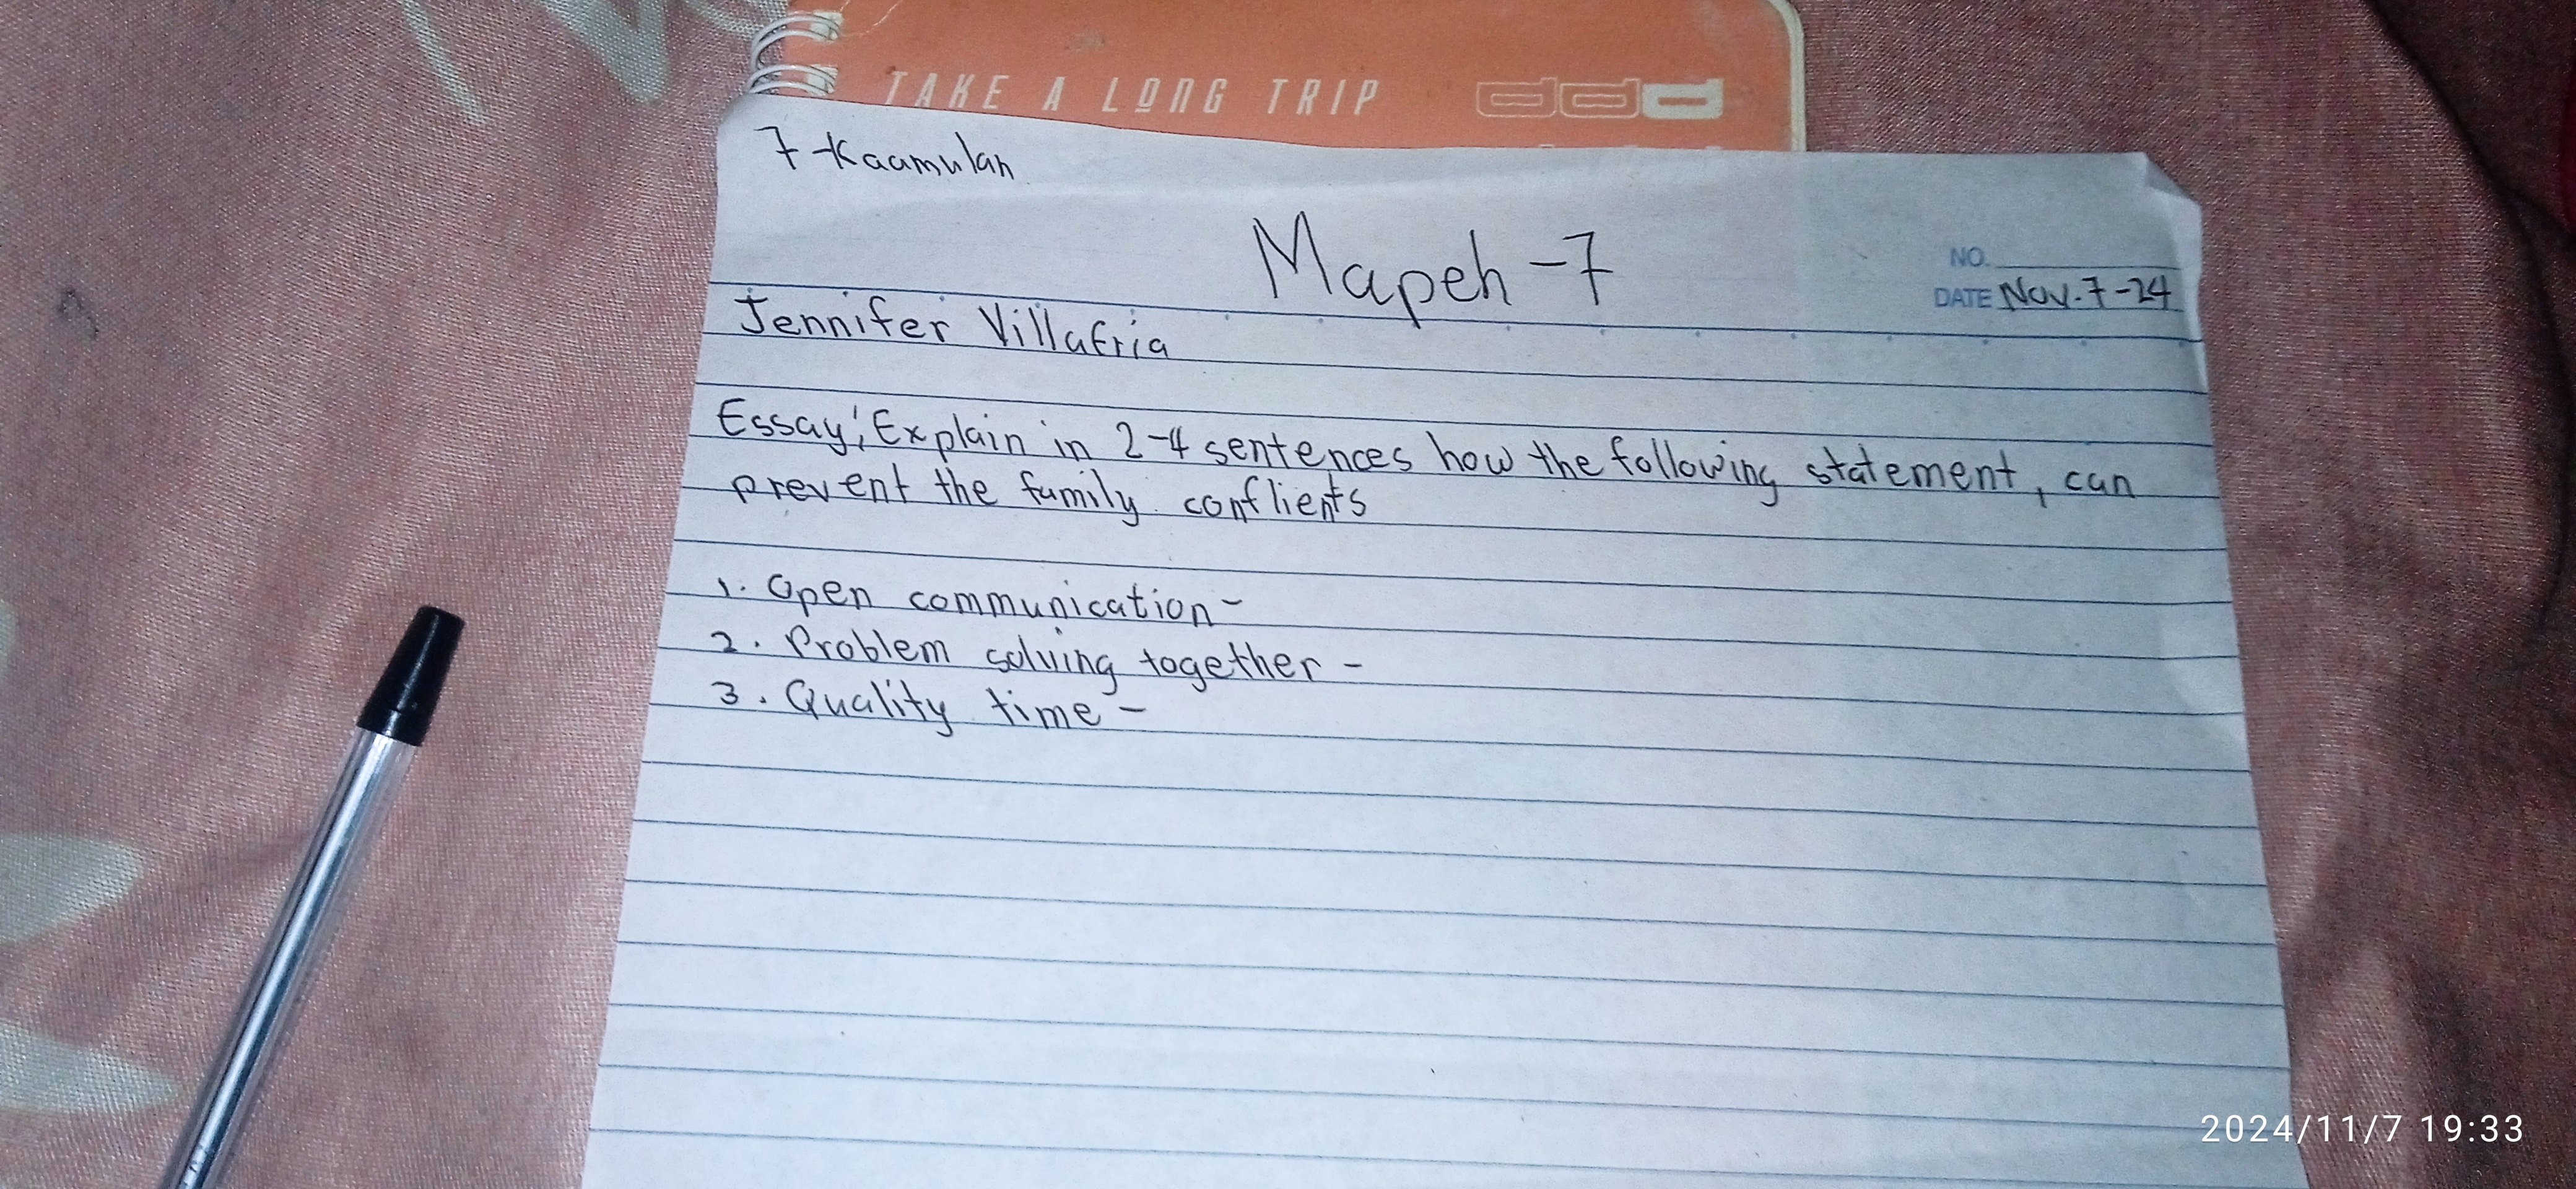 TAKE A LONG TRIP
7-Kaamulan
Mapeh-7
NO.
DATE Nov. 7-24
Jennifer Villafria
Essay; Explain in 2-4 sentences how the following statement, can
prevent the family conflients
1. Open communication-
2. Problem solving together -
3. Quality time -
2024/11/7 19:33